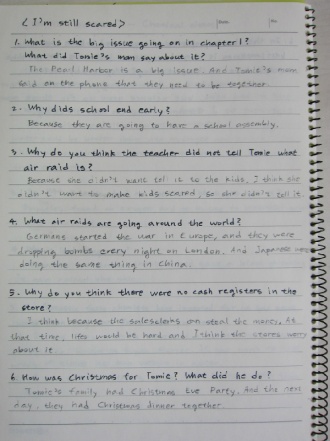 < I'm still scared >
Date
No
1. What is the big issue going on in chapter1?
What did Tomie's mom say about it?
The Pearl Harbor is a big issue. And Tomie's mom
said on the phone that they need to be together.
2. Why dids school end early?
Because they are going to have a school assembly.
3. Why do you think the teacher did not tell Tomie what
air raid is?
Because she didn't want tell it to the kids. I think she
didn't want to make kids scared, so she didn't tell it.
4. What air raids are going around the world?
Germans started the war in Europe, and they were
dropping bombs every night on London. And Japanese were
doing the same thing in China.
5. Why do you think there were no cash registers in the
store?
I think because the salesclerks can steal the money. At
that time, life would be hard and I think the stores worry
about it.
6. How was Christmas for Tomie? What did he do?
Tomie's family had Christmas Eve Party. And the next
day, they had Christmas dinner together.